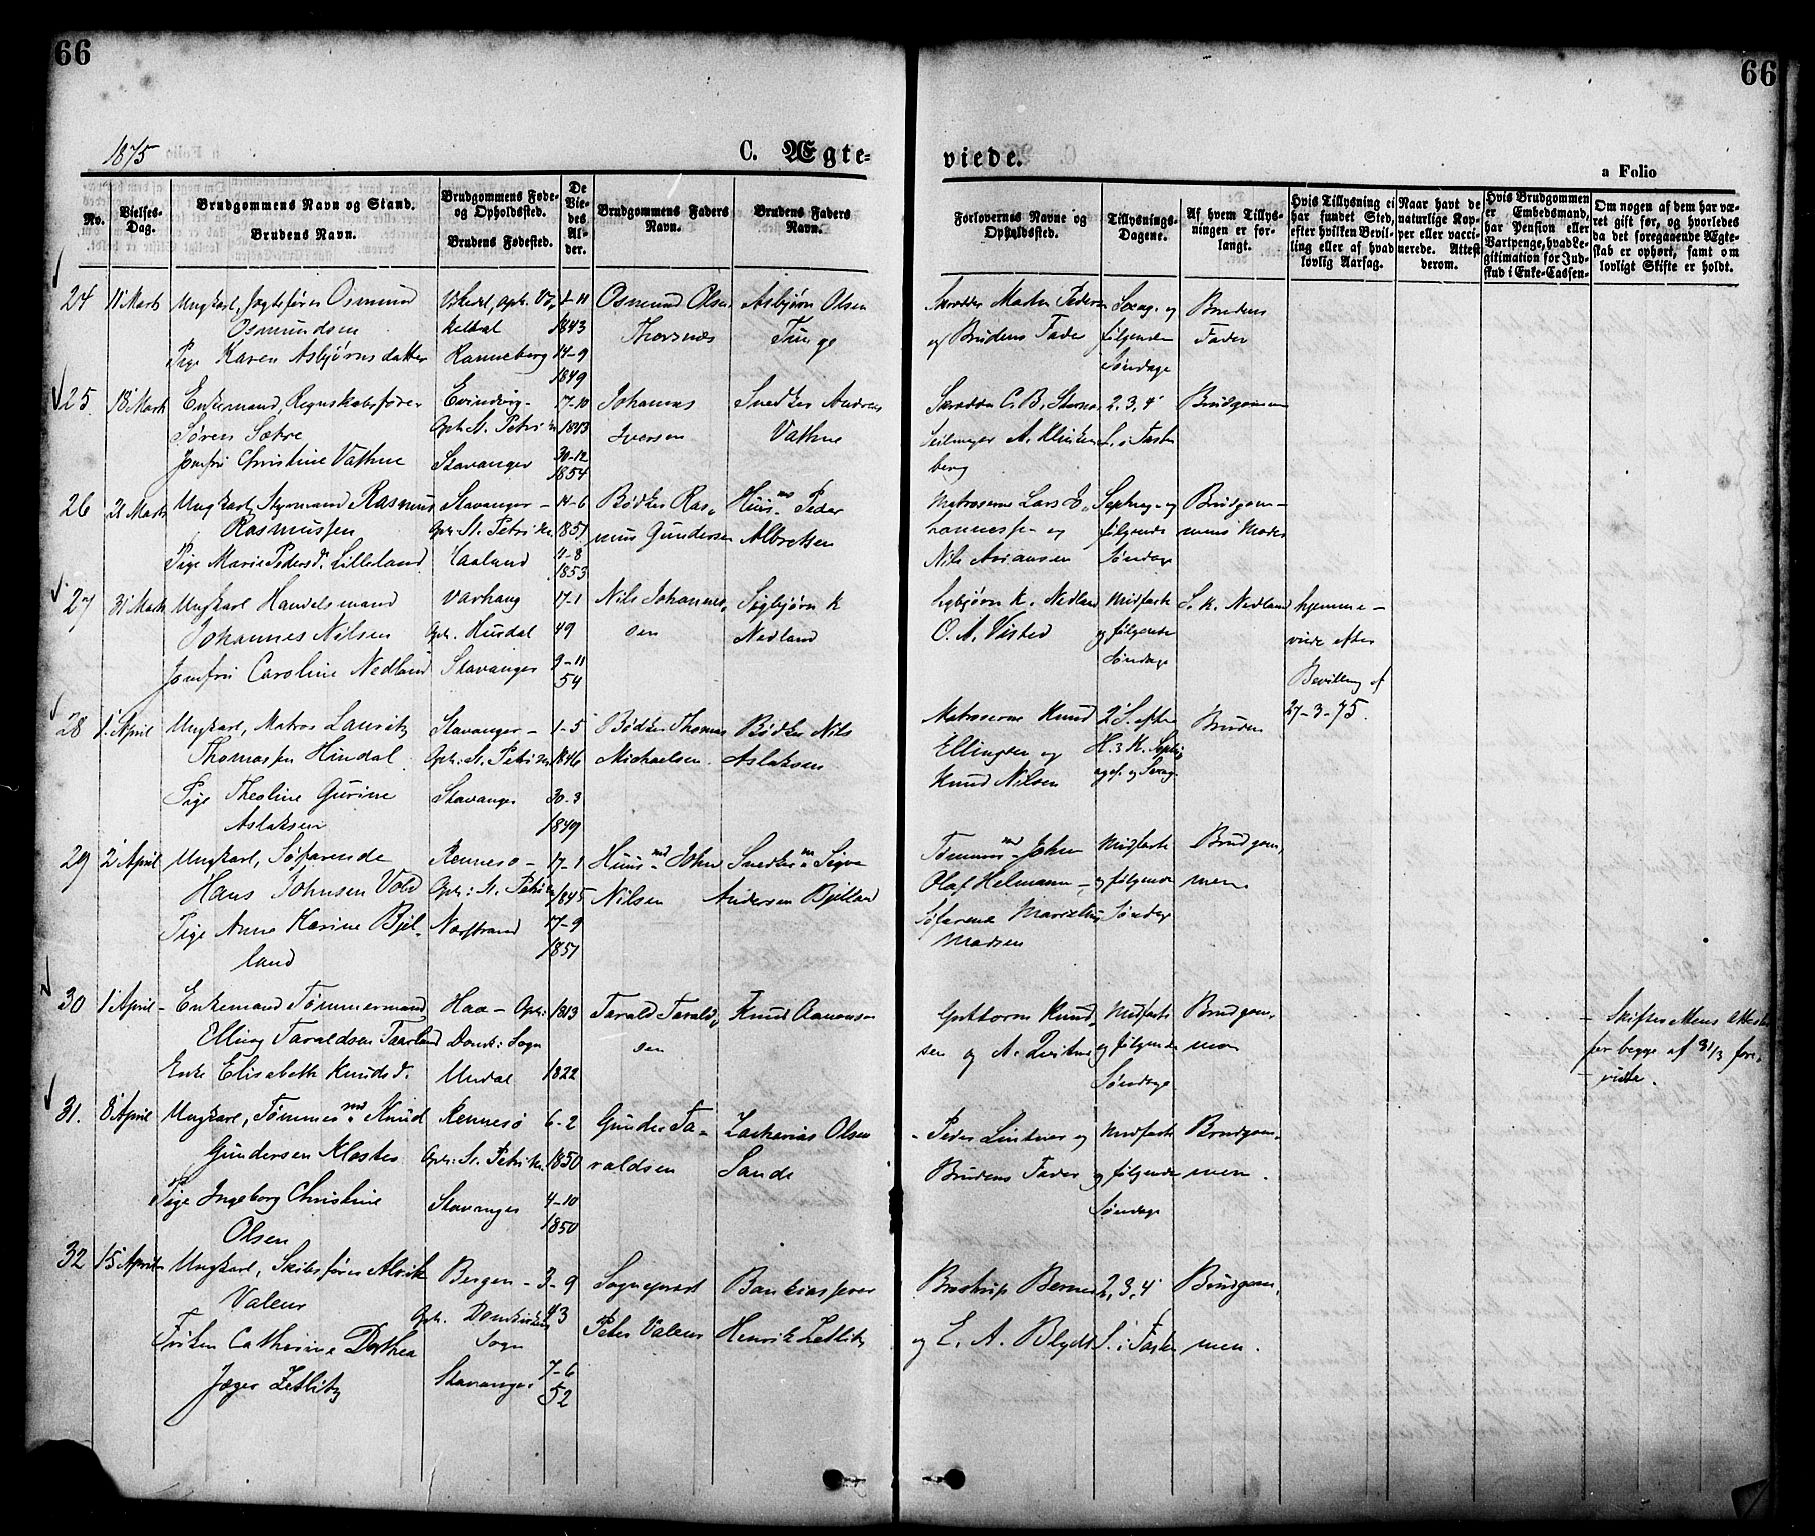 66
66
1875
C. Ægte-
viede.
a Folio
No.
Vielses-
Dag.
Brudgommens Navn og Stand.
Brudens Navn.
Brudgommens Føde-
og Opholdssted.
Brudens Fødested.
De
Vie-
des
Al-
der.
Brudgommens Faders
Navn.
Brudens Faders
Navn.
Forlovernes Navne og
Opholdssted.
Tillysnings-
Dagene.
Af hvem Tillys-
ningen er for-
langt.
Hvis Tillysning ei
har fundet Sted,
efter hvilken Bevil-
ling eller af hvad
lovlig Aarsag.
Naar havt de
naturlige Kop-
per eller vacci-
nerede. Attest
derom.
Hvis Brudgommen
er Embedsmand,
har Pension eller
Vartpenge, hvad Le-
gitimation for Ind-
skud i Enke-Cassen-
Om nogen af dem har væ-
ret gift før, og hvorledes
da det foregaaende Ægte-
skab er ophørt, samt om
lovligt Skifte er holdt.
24 11 Marts Ungkarl, Jagtsfører Osmund
Osmundsen
Pige Karen Asbjørnsdatter
Ranneberg
1843
14-9
1849
Osmund Olsen
Thorsnæs
Asbjørn Olsen
Tunge
Skrædder Martin Pedersen
og Brudens Fader
Sexag. og
følgende
Søndage
Brudens
Fader
25. 18 Marts Enkemand, Regnskabsfører
Søren Sætre
Jomfru Christine Vathne
Evindvig-
Oph. St. Petri K.
Stavanger
17-10
1843
30-12
1854
Johannes
Iversen
Snedker Andreas
Vathne
Skrædder C. B.
Seilmager A. Klinken
berg
2, 3, 4
S. i Faste
Brudgommen
26 21 Marts Ungkarl, Styrmand Rasmus
Rasmussen
Pige Marie Pedersd. Lilleland
Stavanger-
Oph. St. Petri K.
14-6
1851
4-8
1853
Bødker Ras-
mus Gundersen
Huusmd Peder
Albretsen
Matroserne Lars E.
og
Nils
Septuag.- og
følgende
Søndage
Brudgom-
mens Moder
27 31 Marts Ungkarl Handelsmand
Johannes Nilsen
Jomfru Caroline Nedland
Varhaug
Stavanger
17-1
49
9-11
54
Nils Johannes-
sen
Sigbjørn K
Nedland
Sigbjørn K. Nedland
O. A. Visted
Midfaste
og følgende
Søndage
S. K. Nedland
hjemme-
viede efter
Bevilling af
27-3-75.
28 1 April Ungkarl, Matros Lauritz
Thomassen Hindal
Pige Theoline Gurine
Aslaksen
Stavanger-
Oph: St. Petri K
Stavanger
1-5
1846
30-3
1849
Bødker Thomas
Michaelsen
Bødker Nils
Aslaksen
Matroserne Knud
Ellingsen og
Knud Nilsen
2 S. efter
H. 3 K. Septu-
ages. og Sexag.
Bruden
29 2 April Ungkarl, Søfarende
Hans Johnsen Vold
Pige Anne Karine Bjel-
land
Rennesø-
Oph: St. Petri K
Nærstrand
17-1
1845
17-9
1851
Huusmd John
Nilsen
Snedkerm Sigva
Andersen Bjelland
Tømmermd John
Olaf Helmann-
Søfarende
Madsen
Midfaste
og følgende
Søndage
Brudgom-
men
30 1 April- Enkemand Tømmermand
Elling Taraldsen Taarland
Enke Elisabeth Knudsd.
Haa- Oph:
Domk: Sogn
Undal
1813
1822
Tarald Tarald-
sen
Knud Aanonsen
Guttorm Knud-
sen og A. Qvitne
Midfaste
og følgende
Søndage
Brudgom-
men
- Skifterettens Attester
for begge af 31/3 fore-
viste.
31. 8 April Ungkarl, Tømmermd Knud
Gundersen Kloster
Pige Ingeborg Christine
Olsen
Rennesø
Oph: St. Petri K.
Stavanger
6-2
1850
4-10
1850
Gunder Ta-
raldsen
Zacharias Olsen
Sande
Peder Lintner og
Brudens Fader
Midfaste
og følgende
Søndage
Brudgom-
men.
32 15 April- Ungkarl, Skibsfører Alrik
Valeur
Frøken Catherine Dorthea
Jæger Zetlitz
Bergen-
Oph. Domkirkens
Sogn
Stavanger
3-9
43
7-6
52
Sogneprest
Peter Valeur
Bankkasserer
Henrik Zetlitz
Brostrup Berner
og E. A. Blydt
2, 3, 4
S. i Faste
Brudgom-
men.